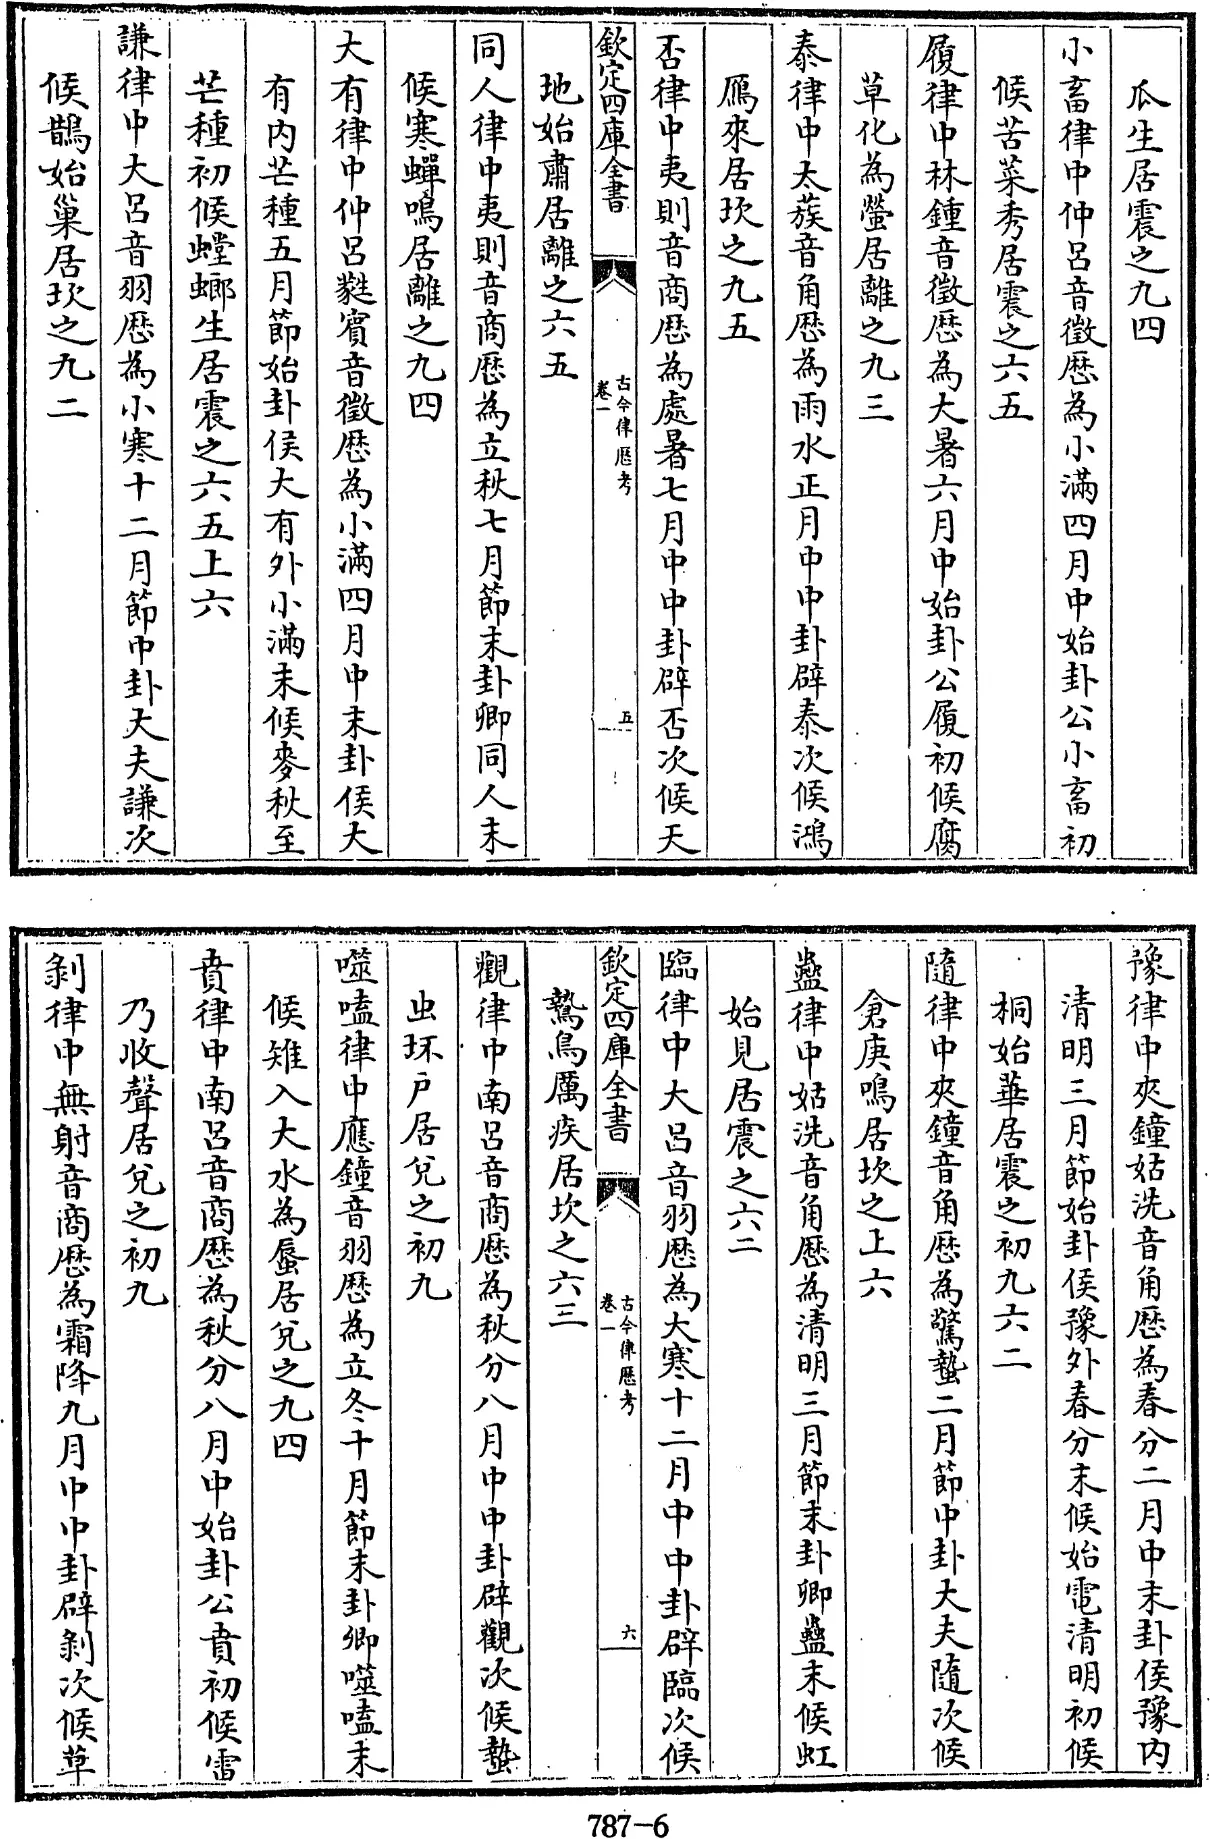 瓜生居震之九四
小畜律中仲呂音徵歴為小滿四月中始卦公小畜初
候苦菜秀居震之六五
履律中林鐘音徵歴為大暑六月中始卦公履初候腐
草化為螢居離之九三
泰律中太蔟音角歴為雨水正月中中卦辟泰次候鴻
鴈來居坎之九五
否律中夷則音商歴為處暑七月中中卦辟否次候天
欽定四庫全書
古今律歴考
卷一
五
地始肅居離之六五
同人律中夷則音商歴為立秋七月節末卦卿同人末
候寒蟬鳴居離之九四
大有律中仲呂蕤賓音徵歴為小滿四月中末卦侯大
有内芒種五月節始卦侯大有外小滿末候麥秋至
芒種初候螳螂生居震之六五上六
謙律中大呂音羽歴為小寒十二月節中卦大夫謙次
候鵲始巢居坎之九二
豫律中夾鐘姑洗音角歴為春分二月中末卦侯豫内
清明三月節始卦侯豫外春分末候始電清明初候
桐始華居震之初九六二
隨律中夾鐘音角歴為驚蟄二月節中卦大夫隨次候
倉庚鳴居坎之上六
蠱律中姑洗音角歴為清明三月節末卦卿蠱末候虹
始見居震之六二
臨律中大呂音羽歴為大寒十二月中中卦辟臨次候
欽定四庫全書
古今律歴考
卷一
六
鷙鳥厲疾居坎之六三
觀律中南呂音商歴為秋分八月中中卦辟觀次候蟄
虫坏戸居兌之初九
噬嗑律中應鐘音羽歴為立冬十月節末卦卿噬嗑末
候雉入大水為蜃居兌之九四
賁律中南呂音商歴為秋分八月中始卦公賁初候雷
乃收聲居兌之初九
剝律中無射音商歴為霜降九月中中卦辟剝次候草
787-6